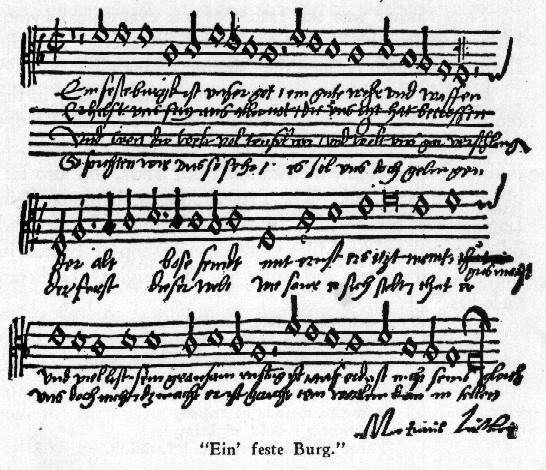 Ein feste burgk ist unser got / ein gute wehr und waffen
Er hilft uns frey aus aller not / die uns itzt hat betroffen
Und wen die welt vol teufel wer / und wolt uns gar verschlingen
So furchten wir uns so sehr / es sol uns doch gelingen
Der alt bose feindt mit ernst ers itzt meint
gros macht
der furst dieser welt wie saur er sich stelt / thut er
und viel list sein grausam rustung ist auf erd ist nicht seins gleich
uns doch nicht das macht er ist gericht ein wortlein kan in fellen
Martinus Luther
“Ein’ feste Burg.”